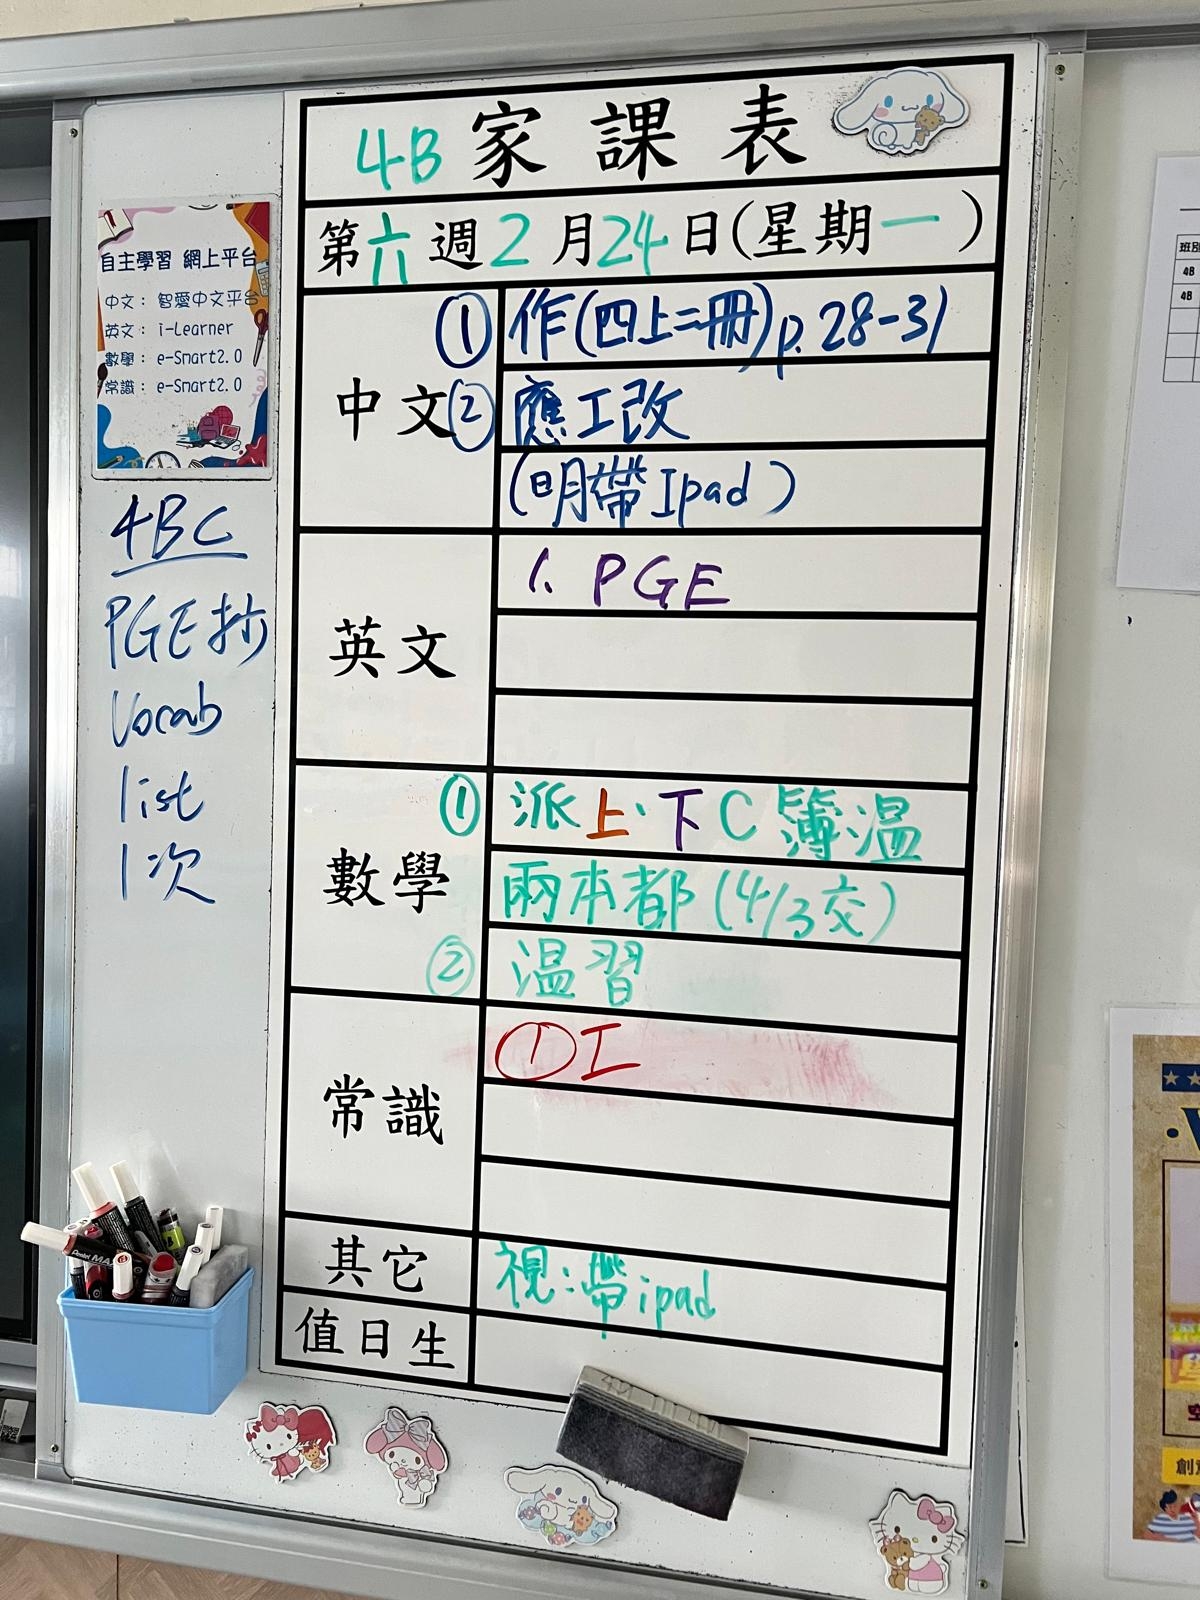 4B 家課表
第六週2月24日(星期一)
自主學習 網上平台
中文：智愛中文平台
英文：i-Learner
數學：e-Smart2.0
常識：e-Smart2.0
4BC
PGE抄
Vocab
list
1次
中文
① 作(四上二冊)p.28-31
② 應工改
(明帶Ipad)
英文
1. PGE
數學
① 派上、下C簿溫
兩本都(4/3交)
② 温習
常識
① 工
其它
視：帶ipad
值日生
班別
4B
4B